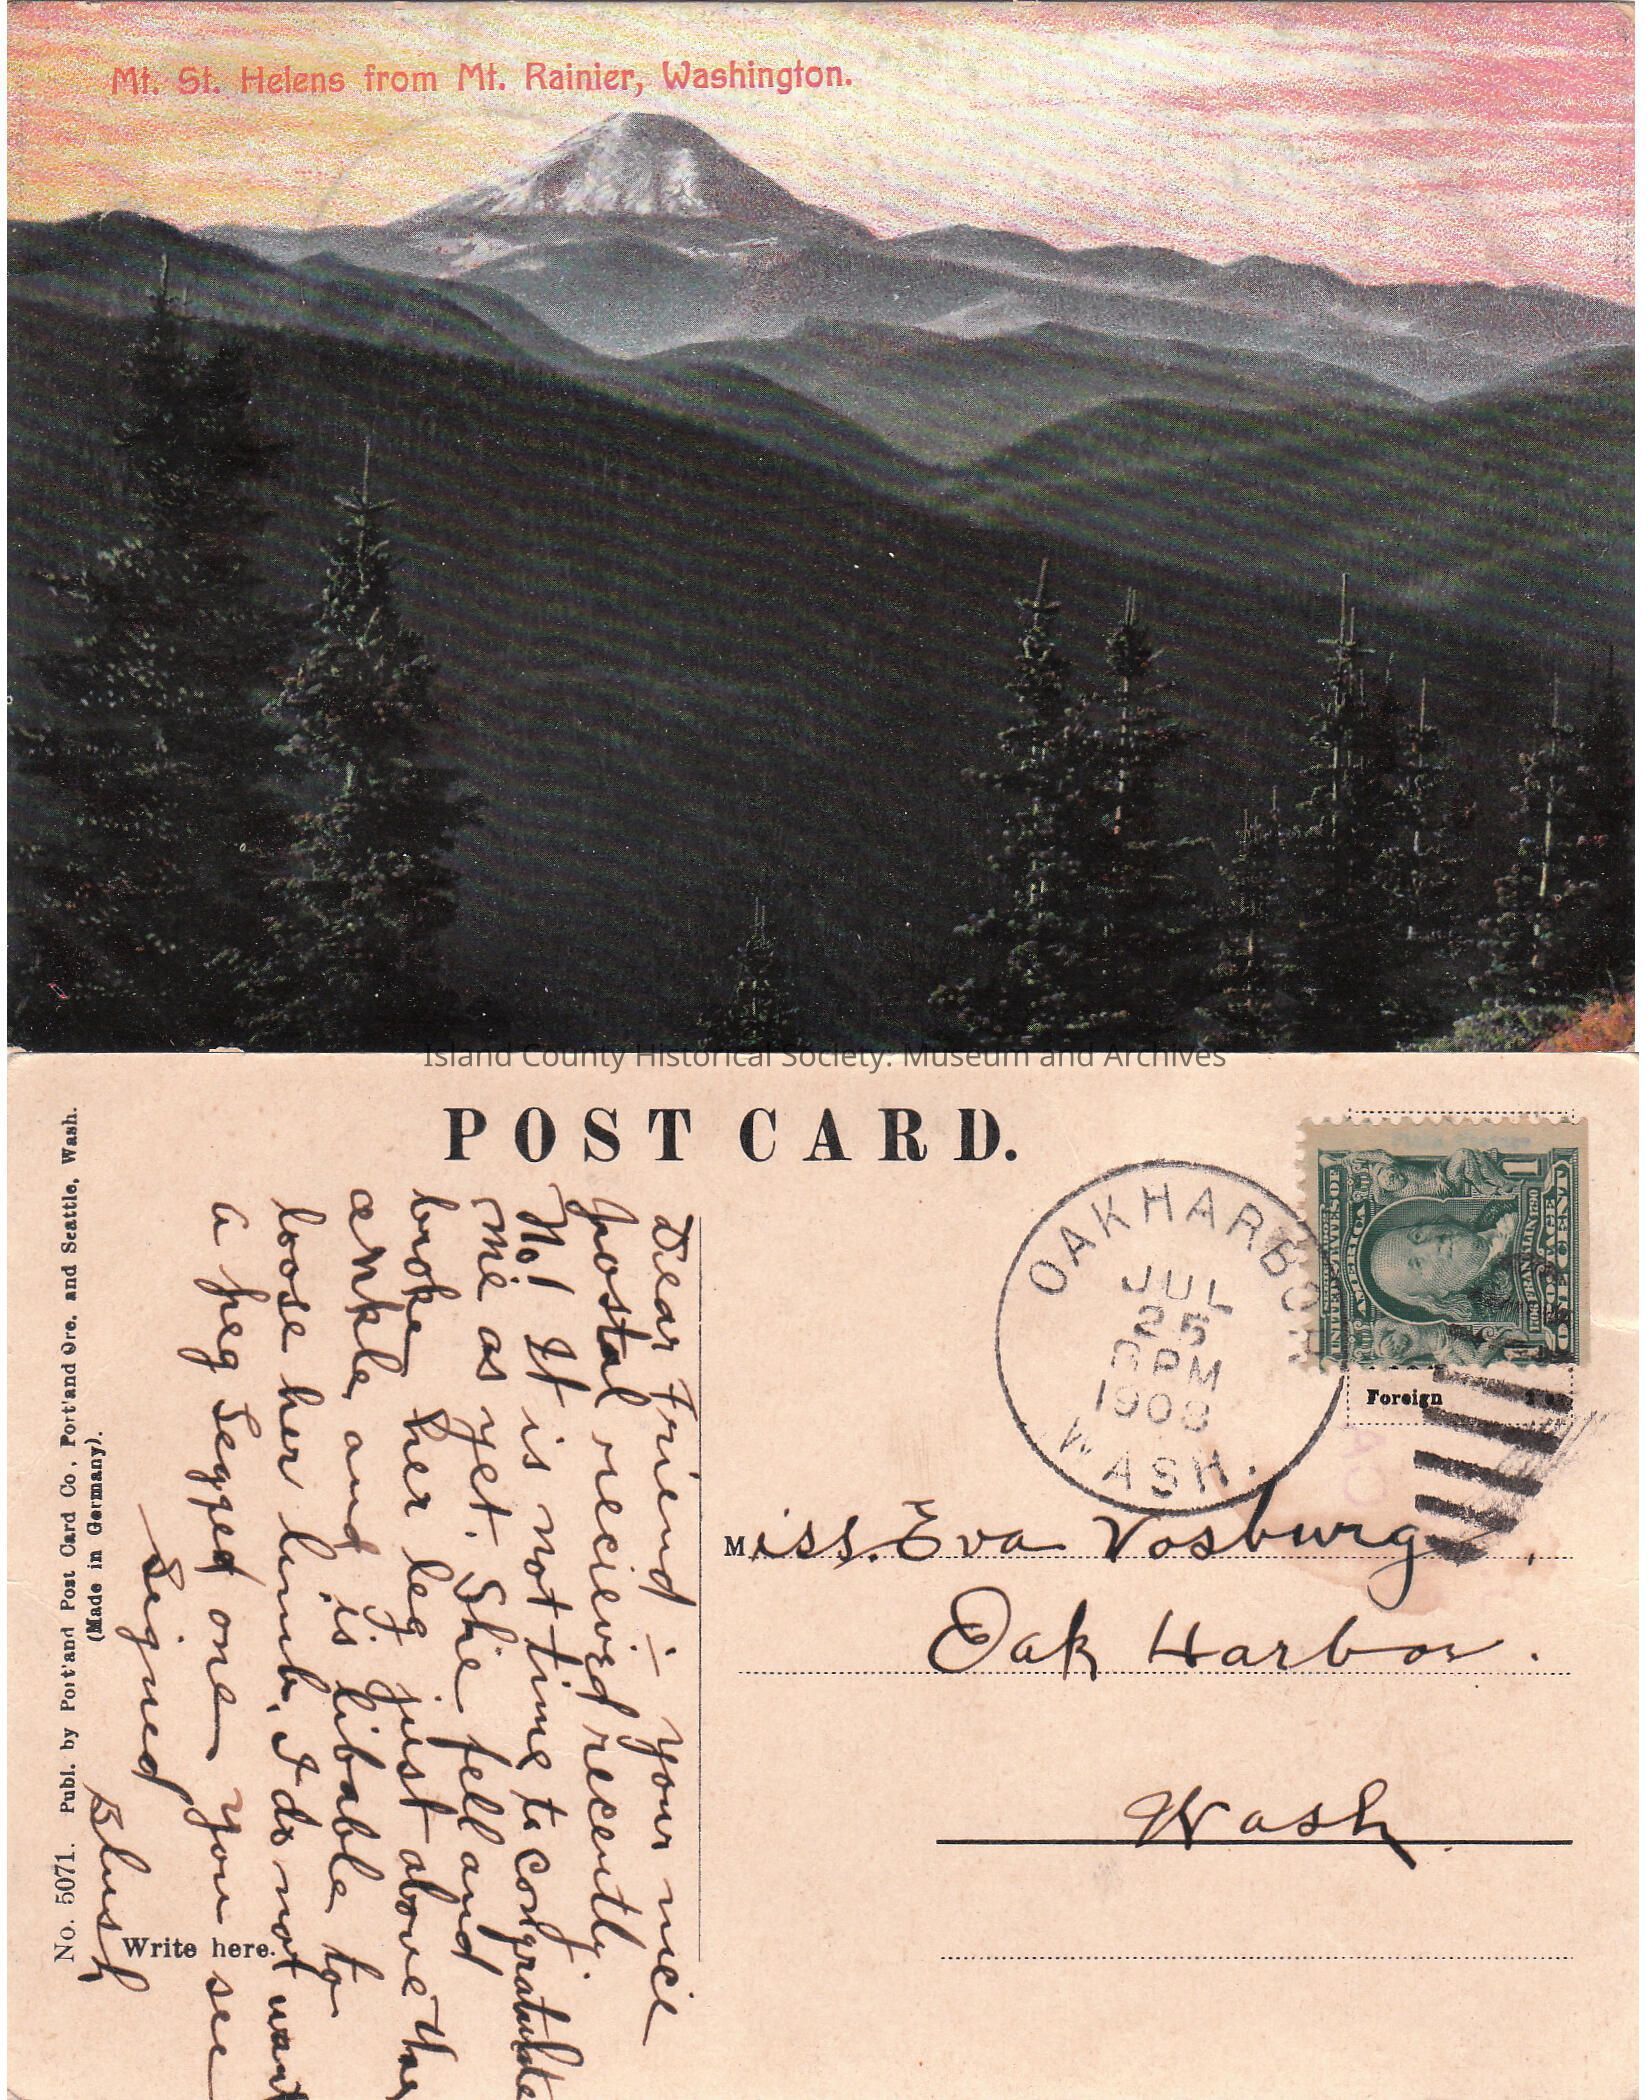 Mt. St. Helens from Mt. Rainier, Washington.
Island County Historical Society: Museum and Archives
POST CARD.
No. 5071. Publ. by Port'and Post Card Co, Port'and Ore. and Seattle, Wash.
(Made in Germany).
Dear Friend :- Your nice
postal recieved recently.
No! It is not time to congratulate
me as yet. She fell and
broke her leg just above the
ankle, and is libable to
loose her limb, I do not want
a peg legged one you see
Signed,
Blush
Write here.
OAK HARBOR
JUL
25
PM
1908
WASH.
1
UNITED STATES OF
AMERICA
FRANKLIN
POSTAGE
ONE CENT
Foreign
Miss. Eva Vosburg,
Oak Harbor.
Wash.